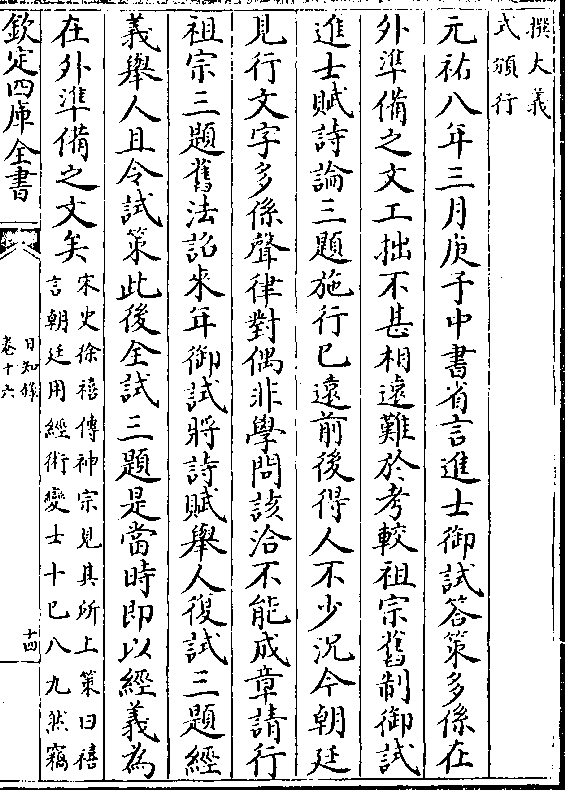 撰大義
式頒行
元祐八年三月庚子中書省言進士御試答策多係在
外準備之文工拙不甚相遠難於考較祖宗舊制御試
進士賦詩論三題施行已遠前後得人不少況今朝廷
見行文字多係聲律對偶非學問該洽不能成章請行
祖宗三題舊法詔來年御試將詩賦舉人復試三題經
義舉人且令試策此後全試三題是當時即以經義為
在外準備之文矣
宋史徐禧傳神宗見其所上策曰禧
言朝廷用經術變士十已八九然竊
欽定四庫全書
日知錄
卷十六
十四